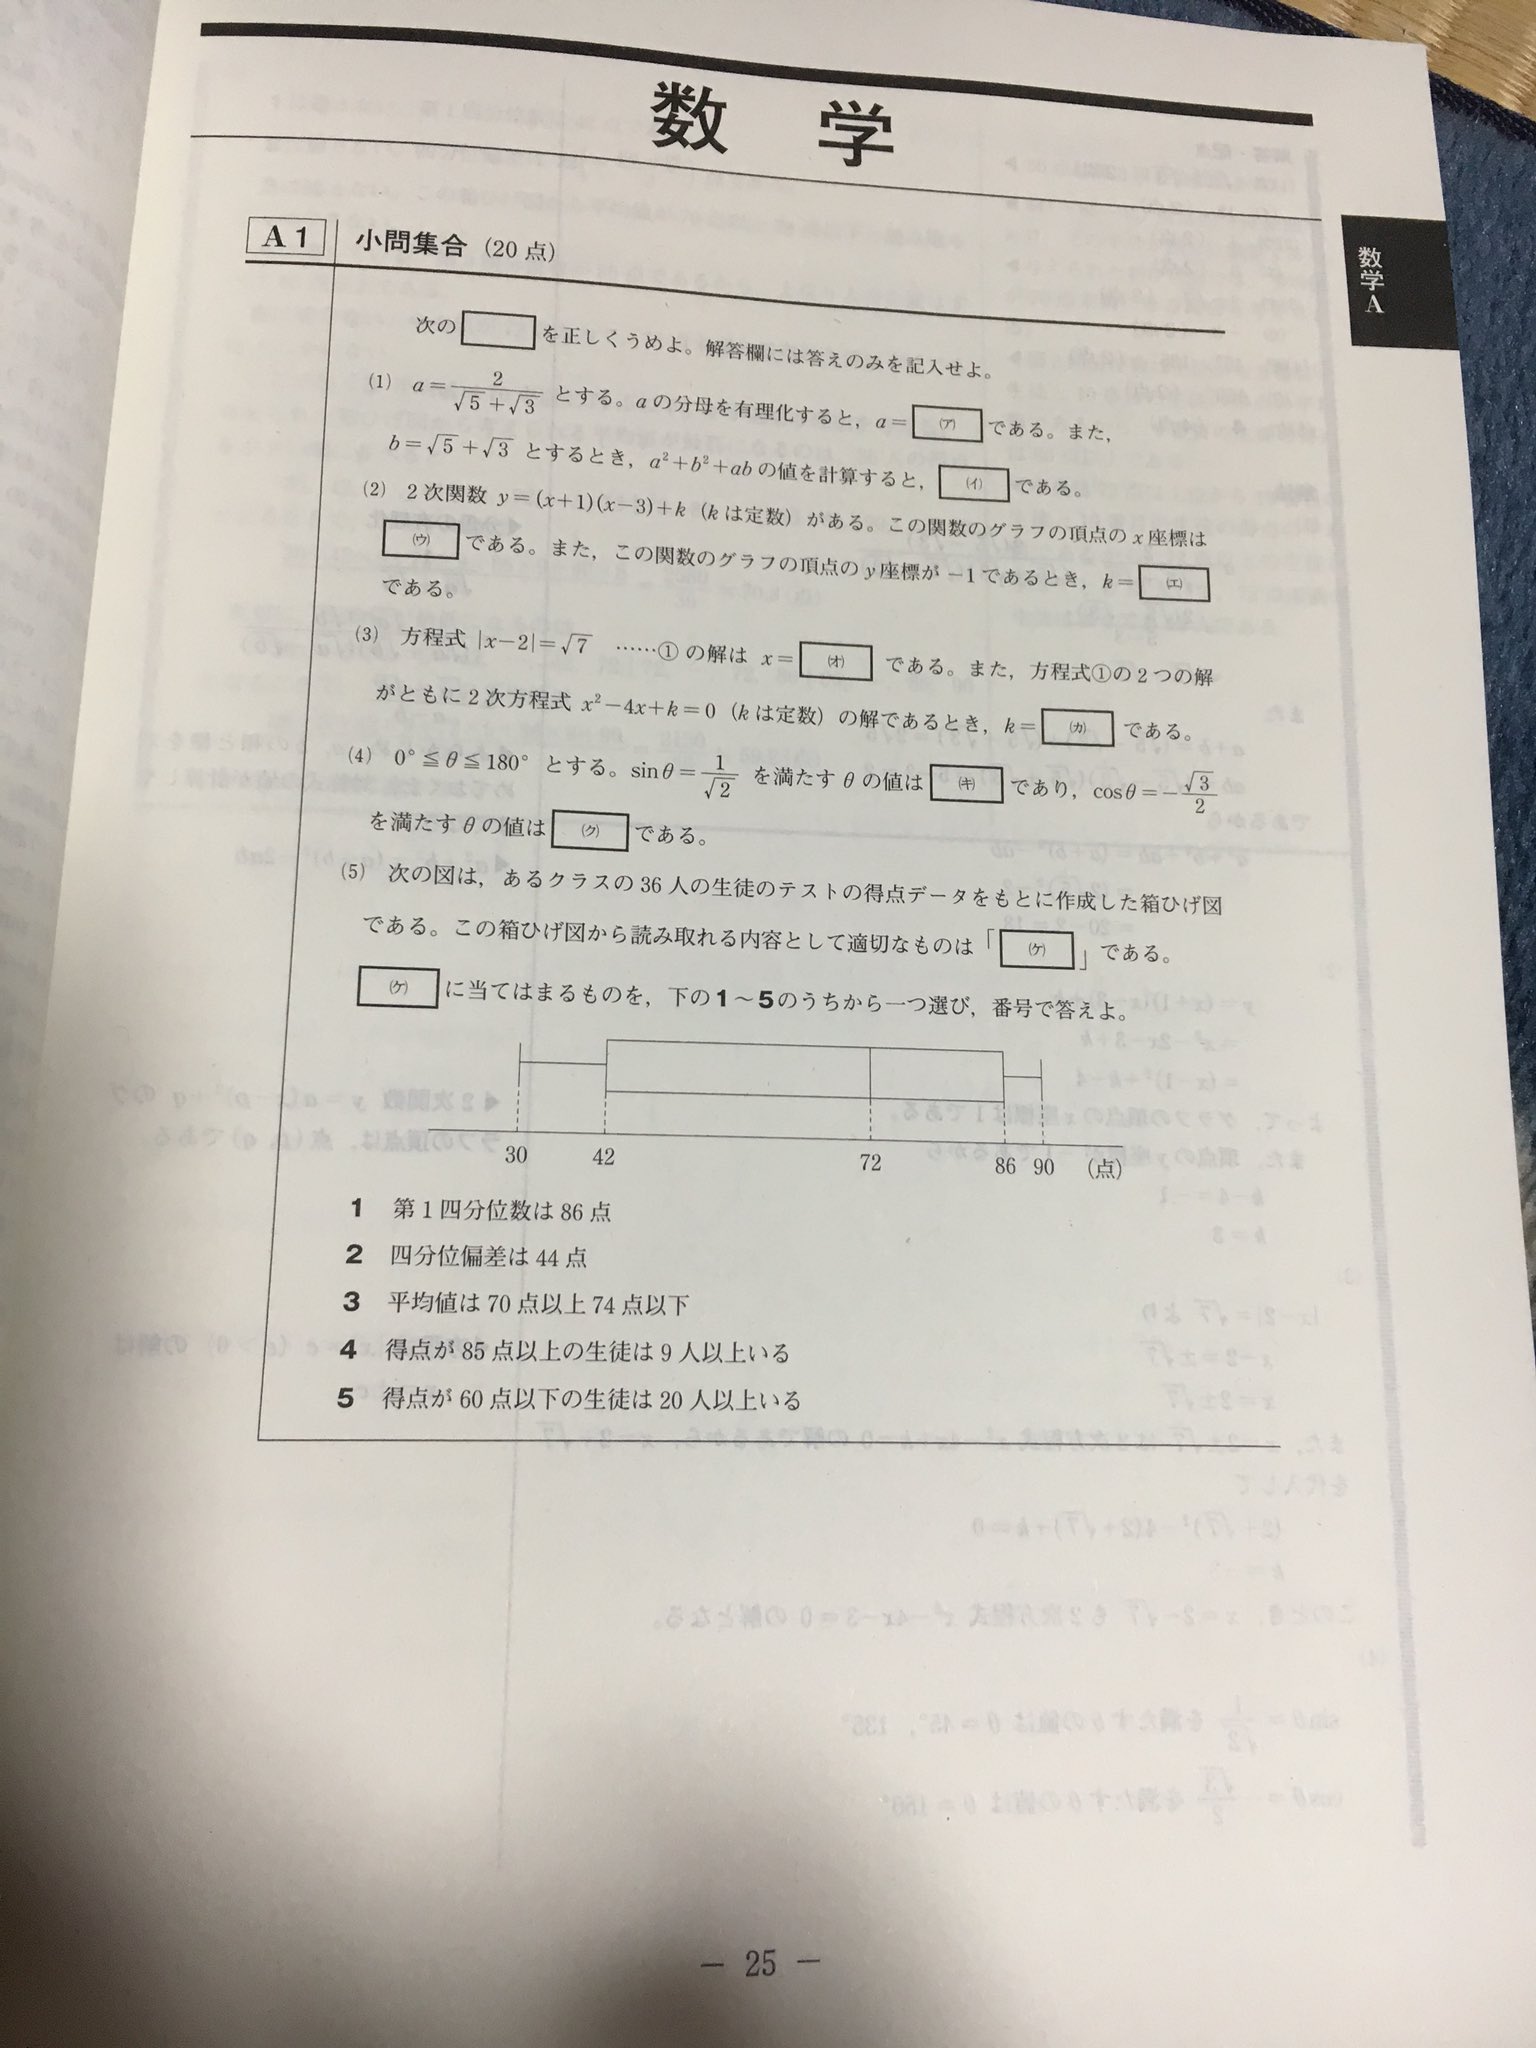 数 学
数学A
A1 小問集合 (20点)
次の　　を正しくうめよ。解答欄には答えのみを記入せよ。
(1) a=2/(√5+√3) とする。aの分母を有理化すると，a=(ア)である。また，
b=√5+√3 とするとき，a²+b²+abの値を計算すると，(イ)である。
(2) 2次関数 y=(x+1)(x−3)+k (kは定数) がある。この関数のグラフの頂点のx座標は
(ウ)である。また，この関数のグラフの頂点のy座標が−1であるとき，k=(エ)
である。
(3) 方程式 |x−2|=√7 ……① の解は x=(オ)である。また，方程式①の2つの解
がともに2次方程式 x²−4x+k=0 (kは定数) の解であるとき，k=(カ)である。
(4) 0°≦θ≦180° とする。sinθ=1/√2 を満たすθの値は(キ)であり，cosθ=−√3/2
を満たすθの値は(ク)である。
(5) 次の図は，あるクラスの36人の生徒のテストの得点データをもとに作成した箱ひげ図
である。この箱ひげ図から読み取れる内容として適切なものは「(ケ)」である。
(ケ)に当てはまるものを，下の1～5のうちから一つ選び，番号で答えよ。
30 42 72 86 90 (点)
1 第1四分位数は86点
2 四分位偏差は44点
3 平均値は70点以上74点以下
4 得点が85点以上の生徒は9人以上いる
5 得点が60点以下の生徒は20人以上いる
— 25 —